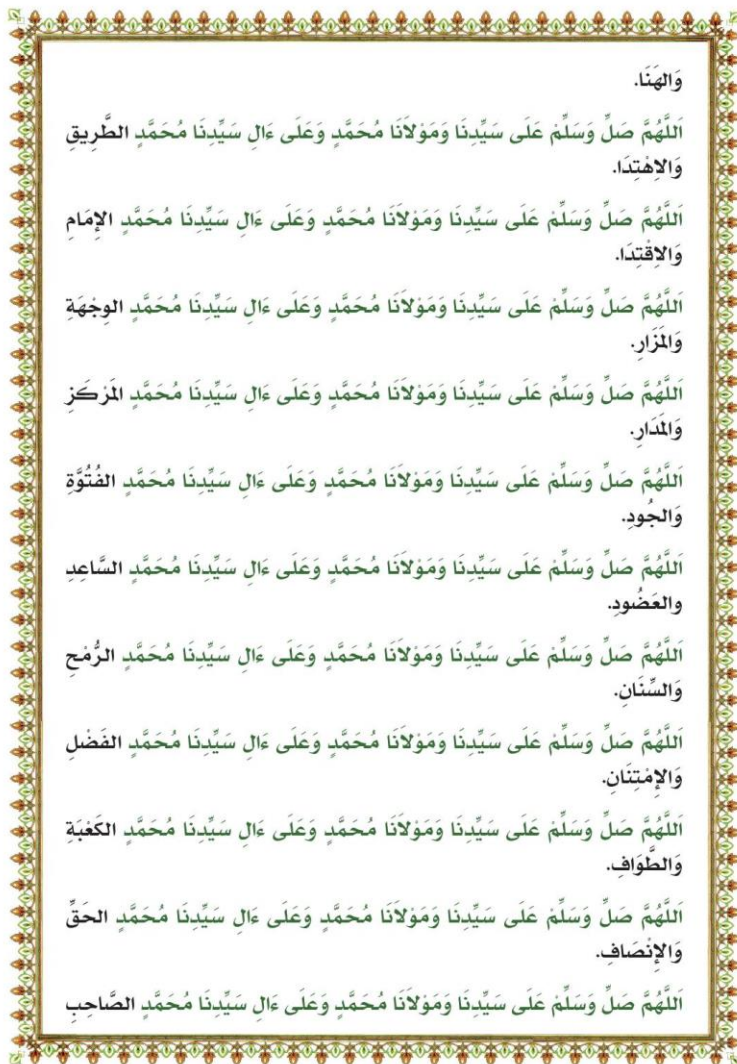 وَالهَنَا.
اَللَّهُمَّ صَلِّ وَسَلِّمْ عَلَى سَيِّدِنَا وَمَوْلَانَا مُحَمَّدٍ وَعَلَى ءَالِ سَيِّدِنَا مُحَمَّدٍ الطَّرِيقِ
وَالِاهْتِدَا.
اَللَّهُمَّ صَلِّ وَسَلِّمْ عَلَى سَيِّدِنَا وَمَوْلَانَا مُحَمَّدٍ وَعَلَى ءَالِ سَيِّدِنَا مُحَمَّدٍ الإِمَامِ
وَالِاقْتِدَا.
اَللَّهُمَّ صَلِّ وَسَلِّمْ عَلَى سَيِّدِنَا وَمَوْلَانَا مُحَمَّدٍ وَعَلَى ءَالِ سَيِّدِنَا مُحَمَّدٍ الوِجْهَةِ
وَالمَزَارِ.
اَللَّهُمَّ صَلِّ وَسَلِّمْ عَلَى سَيِّدِنَا وَمَوْلَانَا مُحَمَّدٍ وَعَلَى ءَالِ سَيِّدِنَا مُحَمَّدٍ المَرْكَزِ
وَالمَدَارِ.
اَللَّهُمَّ صَلِّ وَسَلِّمْ عَلَى سَيِّدِنَا وَمَوْلَانَا مُحَمَّدٍ وَعَلَى ءَالِ سَيِّدِنَا مُحَمَّدٍ الفُتُوَّةِ
وَالجُودِ.
اَللَّهُمَّ صَلِّ وَسَلِّمْ عَلَى سَيِّدِنَا وَمَوْلَانَا مُحَمَّدٍ وَعَلَى ءَالِ سَيِّدِنَا مُحَمَّدٍ السَّاعِدِ
والعَضُودِ.
اَللَّهُمَّ صَلِّ وَسَلِّمْ عَلَى سَيِّدِنَا وَمَوْلَانَا مُحَمَّدٍ وَعَلَى ءَالِ سَيِّدِنَا مُحَمَّدٍ الرُّمْحِ
وَالسِّنَانِ.
اَللَّهُمَّ صَلِّ وَسَلِّمْ عَلَى سَيِّدِنَا وَمَوْلَانَا مُحَمَّدٍ وَعَلَى ءَالِ سَيِّدِنَا مُحَمَّدٍ الفَضْلِ
وَالإِمْتِنَانِ.
اَللَّهُمَّ صَلِّ وَسَلِّمْ عَلَى سَيِّدِنَا وَمَوْلَانَا مُحَمَّدٍ وَعَلَى ءَالِ سَيِّدِنَا مُحَمَّدٍ الكَعْبَةِ
وَالطَّوَافِ.
اَللَّهُمَّ صَلِّ وَسَلِّمْ عَلَى سَيِّدِنَا وَمَوْلَانَا مُحَمَّدٍ وَعَلَى ءَالِ سَيِّدِنَا مُحَمَّدٍ الحَقِّ
وَالإِنْصَافِ.
اَللَّهُمَّ صَلِّ وَسَلِّمْ عَلَى سَيِّدِنَا وَمَوْلَانَا مُحَمَّدٍ وَعَلَى ءَالِ سَيِّدِنَا مُحَمَّدٍ الصَّاحِبِ